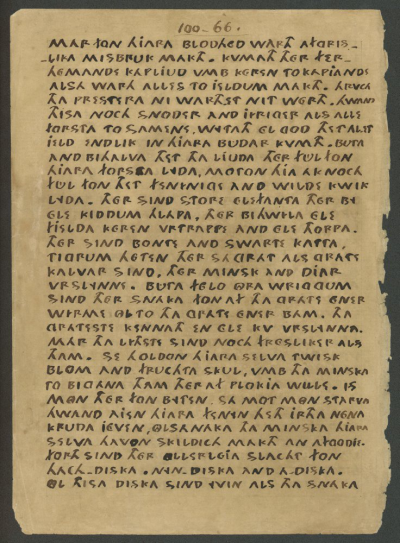 190-66.
MAR FON HIARA BLODHED WARTH AFORIS-
LIKA MISBRUK MAKTH. KVMATH THER FER-
HEMANDE KAPLIUD VMB KEREN TO KAPIANDE
ALSA WARTH ALLES TO IELDUM MAKTH. THRVCH
THA PRESTERA NI WARTHET NIT WERTH, HWAND
THISA NOCH SNODER AND IRIGER ALS ALLE
FORSTA TO SAMENE, WYTATH EL GOD THET ALET
IELD ENDLIK IN HIARA BUDAR KVMTH. BUTA
AND BIHALVA THET THA LIUDA THER FUL FON
HIARA FORSTA LYDA, MOTON HIA AK NOCH
FUL FON THET FENINIGE AND WILDE KWIK
LYDA. THER SIND STORE ELEFANTA THER BY
ELE KIDDUM HLAPA, THER BIHWILA ELE
FIELDA KEREN VRTRAPPE AND ELE THORPA.
THER SIND BONTE AND SWARTE KATTA,
TIGRUM HETEN THER SA GRAT ALS GRATE
KALVAR SIND, THER MINSK AND DIAR
VRSLYNNE. BUTA FELO ORA WRIGGUM
SIND THER SNAKA FON AF THA GRATE ENER
WIRME AL TO THA GRATE ENER BAM. THA
GRATESTE KENNATH EN ELE KV VRSLYNNA.
MAR THA LESTE SIND NOCH FRESLIKER ALS
THAM. SE HOLDON HIARA SELVA TWISK
BLOM AND FRUCHTA SKUL, VMB THA MINSKA
TO BIGANA THAM THER AF PLOKIA WILLE. IS
MON THER FON BYTEN, SA MOT MON STARVA
HWAND AIEN HIARA FENIN HETH IRTHA NENA
KRUDA IEVEN, OLSANAKA THA MINSKA HIARA
SELVA HAVON SKILDICH MAKTH AN AFGODIE.
FORTH SIND THER ALLERLEIA SLACHT FON
HACH-DISKA. NYN-DISKA AND A-DISKA.
AL THISA DISKA SIND YVIN ALS THA SNAKA